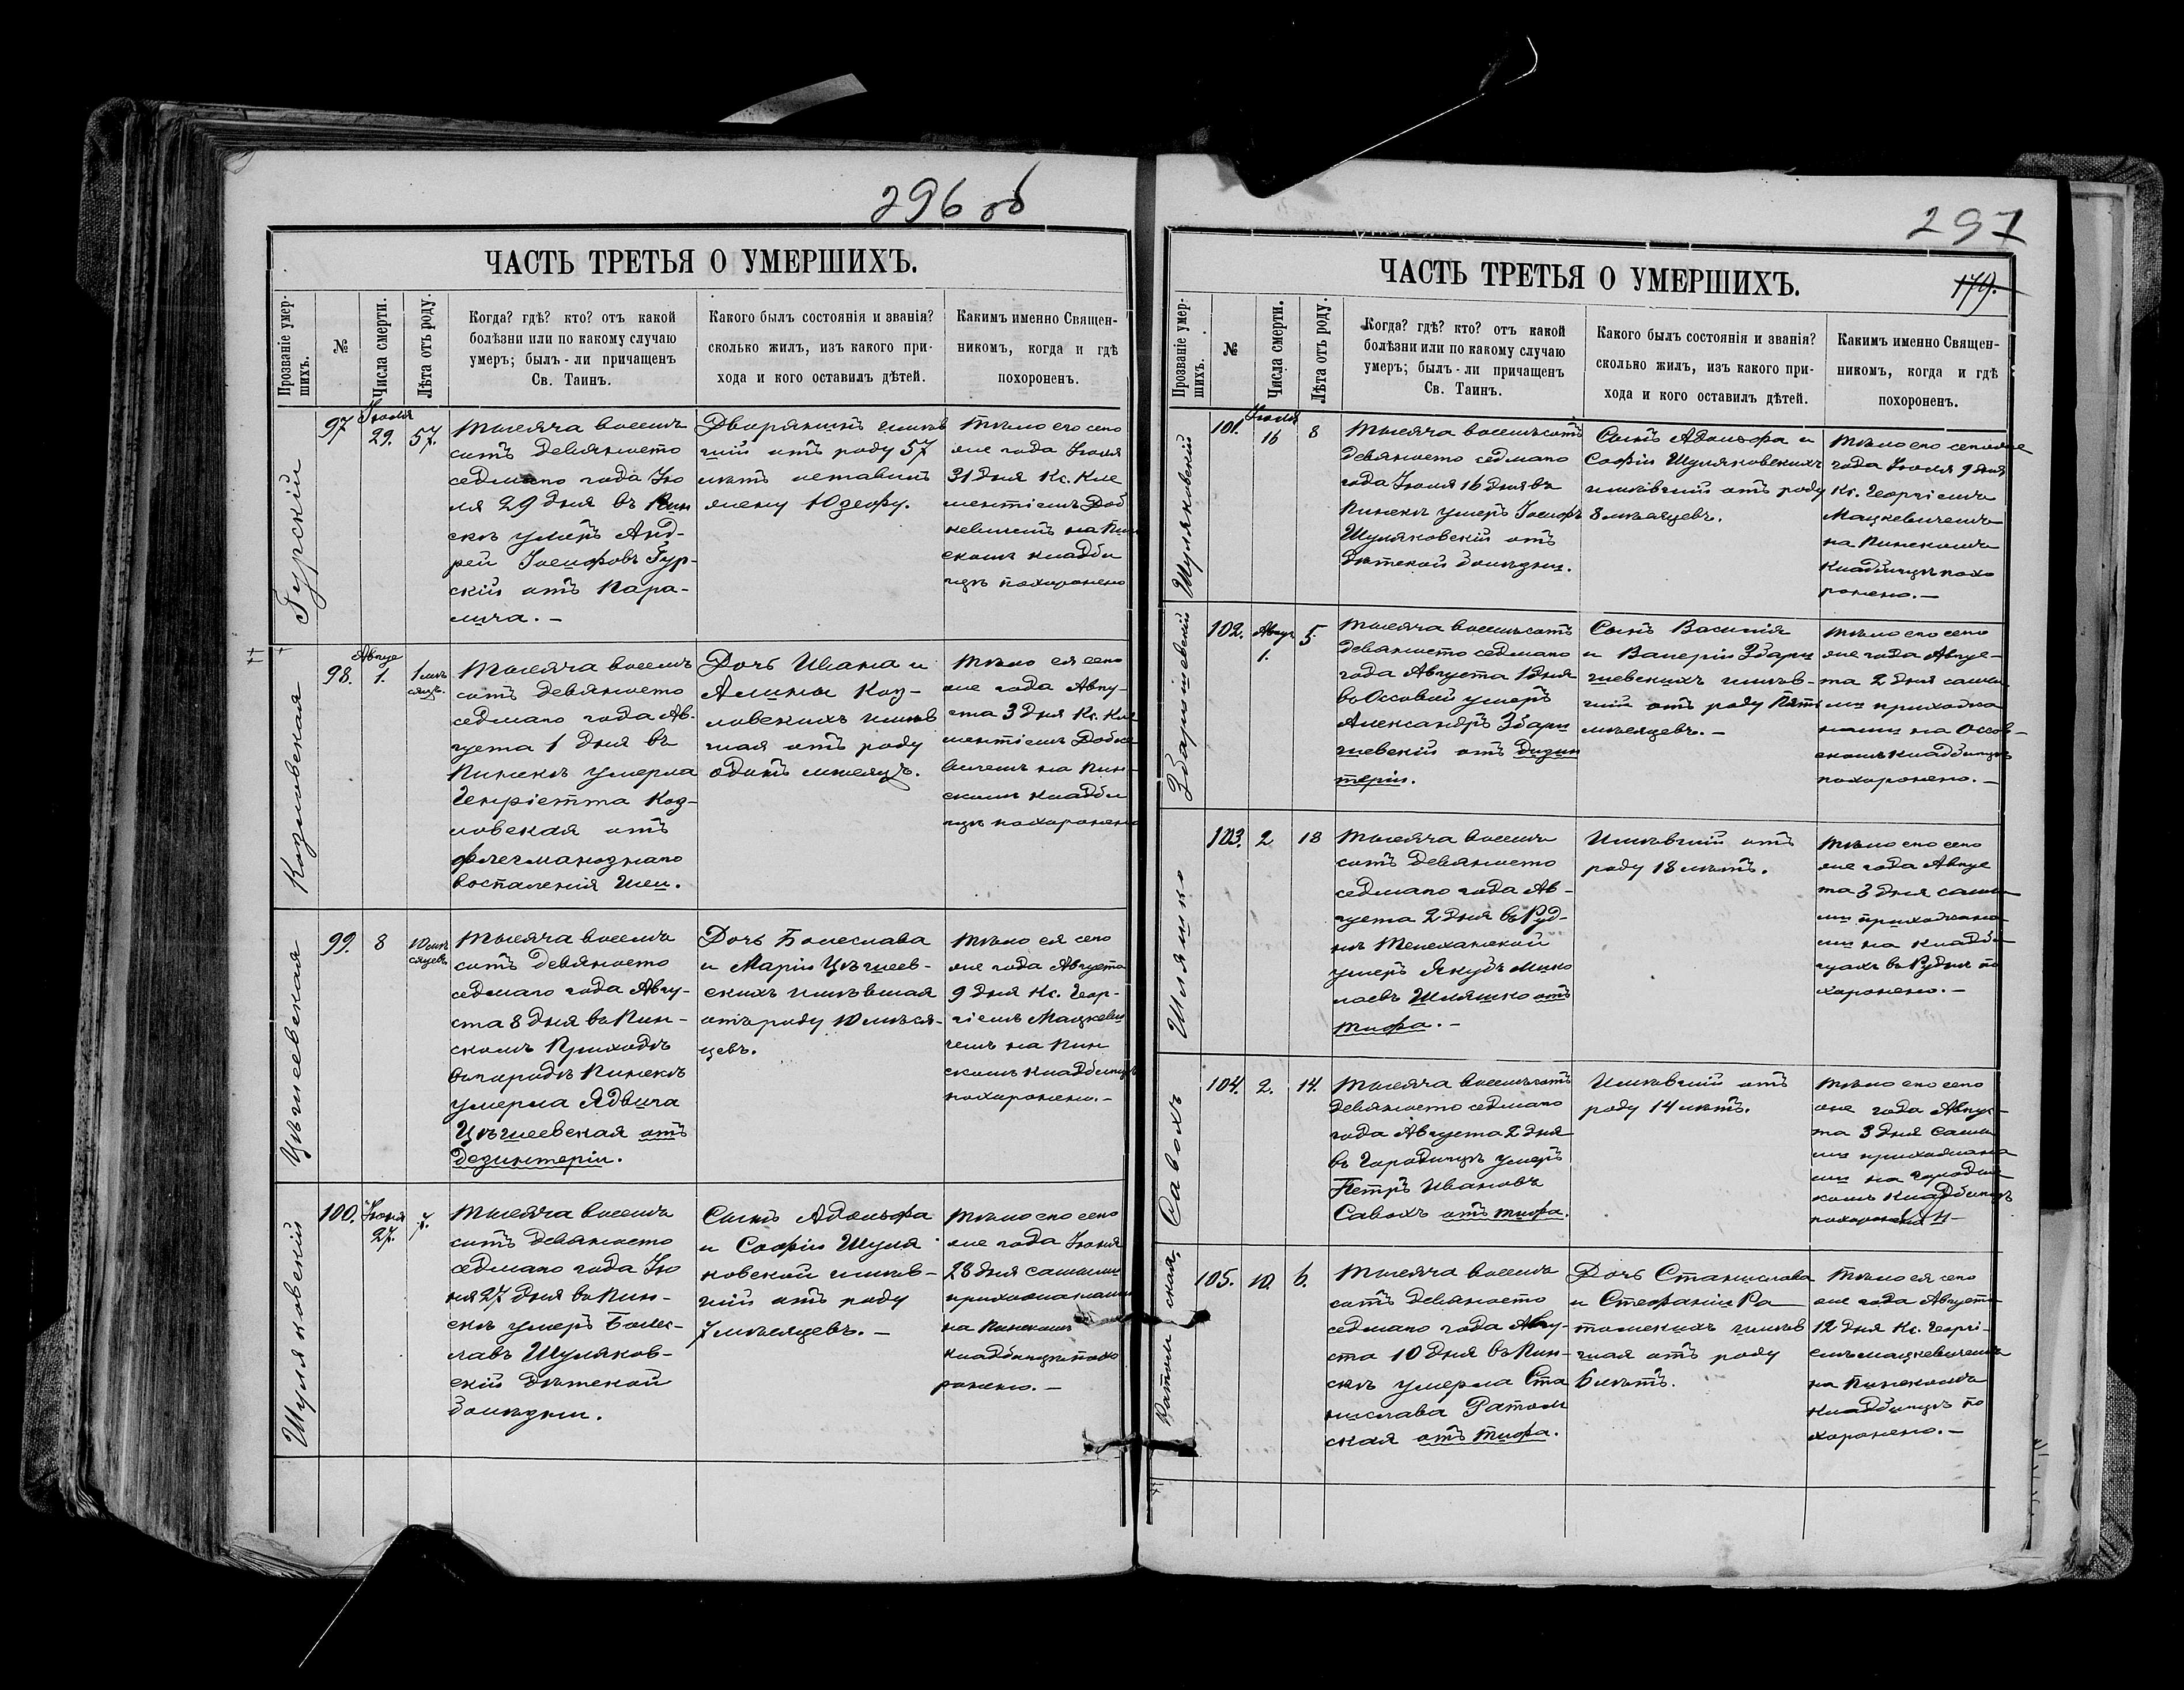 296 об
ЧАСТЬ ТРЕТЬЯ О УМЕРШИХЪ.
Прозваніе умер-
шихъ.
№
Числа смерти.
Лѣта отъ роду.
Когда? гдѣ? кто? отъ какой
болѣзни или по какому случаю
умеръ; былъ-ли причащенъ
Св. Таинъ.
Какого былъ состоянія и званія?
сколько жилъ, изъ какого при-
хода и кого оставилъ дѣтей.
Какимъ именно Священ-
никомъ, когда и гдѣ
похороненъ.
Гурскій
97
Іюля
29.
57.
Тысяча восемъ
сотъ девяносто
седмаго года Ію
ля 29 дня въ Пин
скѣ умеръ Анд-
рей Іосифовъ Гур-
скій отъ пара-
лича. —
Дворянинъ имѣв
шій отъ роду 57
лѣтъ оставилъ
жену Юзефу.
Тѣло его сего
же года Іюля
31 дня Кс. Кле
ментіемъ Доб
кевичемъ на Пин
скомъ кладби
щѣ похоронено
Козловская
98.
Авгус
1.
1 мѣ
сяцъ.
Тысяча восемъ
сотъ девяносто
седмаго года Ав-
густа 1 дня въ
Пинскѣ умерла
Генріетта Коз-
ловская отъ
флегманознаго
воспаленія шеи.
Дочь Ивана и
Алины Коз-
ловскихъ имѣв
шая отъ роду
одинъ мѣсяцъ.
Тѣло ея сего
же года Авгу-
ста 3 дня Кс. Кле
ментіемъ Добке
вичемъ на Пин-
скомъ кладби
щѣ похоронено
Цѣшеевская
99.
8
10 мѣ
сяцевъ
Тысяча восемъ
сотъ девяносто
седмаго года Авгу-
ста 8 дня въ Пин-
скомъ Приходѣ
въ городѣ Пинскѣ
умерла Ядвига
Цѣшеевская отъ
дезинтеріи.
Дочь Болеслава
и Маріи Цѣшеев-
скихъ имѣвшая
отъ роду 10 мѣся-
цевъ.
Тѣло ея сего
же года Августа
9 дня Кс. Геор-
гіемъ Мацкеви
чемъ на Пин
скомъ кладбищѣ
похоронено. —
Шуляковскій
100.
Іюня
27.
7.
Тысяча восемъ
сотъ девяносто
седмаго года Ію
ня 27 дня въ Пин-
скѣ умеръ Болес-
лавъ Шуляков-
скій дѣтской
болѣзни.
Сынъ Адольфа
и Софіи Шуля
ковской имѣв-
шій отъ роду
7 мѣсяцевъ. —
Тѣло его сего
же года Іюня
28 дня самыми
прихожанами
на Пинскомъ
кладбищѣ похо
ронено. —
297
ЧАСТЬ ТРЕТЬЯ О УМЕРШИХЪ.
179.
Прозваніе умер-
шихъ.
№
Числа смерти.
Лѣта отъ роду.
Когда? гдѣ? кто? отъ какой
болѣзни или по какому случаю
умеръ; былъ-ли причащенъ
Св. Таинъ.
Какого былъ состоянія и званія?
сколько жилъ, изъ какого при-
хода и кого оставилъ дѣтей.
Какимъ именно Священ-
никомъ, когда и гдѣ
похороненъ.
Шуляковскій
101.
Іюля
16
8
Тысяча восемъсотъ
девяносто седмаго
года Іюля 16 дня въ
Пинскѣ умеръ Іосифъ
Шуляковскій отъ
дѣтской болѣзни.
Сынъ Адольфа и
Софіи Шуляковскихъ
имѣвшій отъ роду
8 мѣсяцевъ.
Тѣло его сего же
года Іюля 9 дня
Кс. Георгіемъ
Мацкевичемъ
на Пинскомъ
кладбищѣ похо
ронено. —
Збаришевскій
102.
Авгус
1.
5
Тысяча восемъсотъ
девяносто седмаго
года Августа 1 дня
въ Оссовой умеръ
Александръ Збари
шевскій отъ дизин
теріи.
Сынъ Василія
и Валеріи Збари
шевскихъ имѣв-
шій отъ роду пять
мѣсяцевъ. —
Тѣло его сего
же года Авгус-
та 2 дня самы
ми прихожа
нами на Оссов-
скомъ кладбищѣ
похоронено. —
Шляшко
103.
2
18
Тысяча восемъ
сотъ девяносто
седмаго года Ав-
густа 2 дня въ Руд-
нѣ Телеханской
умеръ Якубъ Мико
лаевъ Шляшко отъ
тифа. —
Имѣвшій отъ
роду 18 лѣтъ.
Тѣло его сего
же года Авгус
та 3 дня самы
ми прихожана-
ми на кладби
щахъ въ Руднѣ по
хоронено. —
Савохъ
104.
2.
14.
Тысяча восемъсотъ
девяносто седмаго
года Августа 2 дня
въ Городищѣ умеръ
Петръ Ивановъ
Савохъ отъ тифа.
Имѣвшій отъ
роду 14 лѣтъ.
Тѣло его сего
же года Авгус-
та 3 дня самы
ми прихожана
ми на Городис
комъ кладбищѣ
похоронено —
Ратомская.
105.
10.
6.
Тысяча восемъ
сотъ девяносто
седмаго года Авгу-
ста 10 дня въ Пин-
скѣ умерла Ста
нислава Ратом
ская отъ тифа.
Дочь Станислава
и Стефаніи Ра
томскихъ имѣв
шая отъ роду
6 лѣтъ.
Тѣло ея сего
же года Августа
12 дня Кс. Георгі-
емъ Мацкевичемъ
на Пинскомъ
кладбищѣ по
хоронено. —